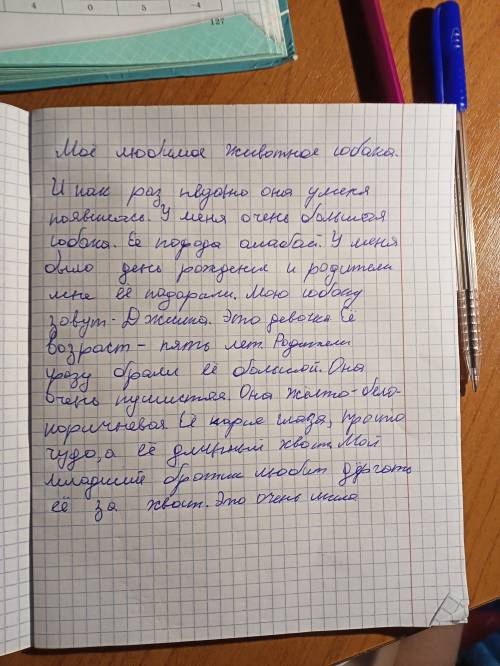 4 0 5 -4
127
Моё любимое животное собака.
И как раз недавно она уменя
появилась. У меня очень большая
собака. Её парода алабай. У меня
было день рождения и родители
мне её падарали. Мою собаку
зовут - Джилка. Это девочка Её
возраст - пять лет. Родители
сразу брали её большой. Она
очень пушистая Она желто-бело-
коричневая Её карие глаза, просто
чудо, а её длиный хвост. Мой
младший братик любит дёргать
её за хвост. Это очень мило